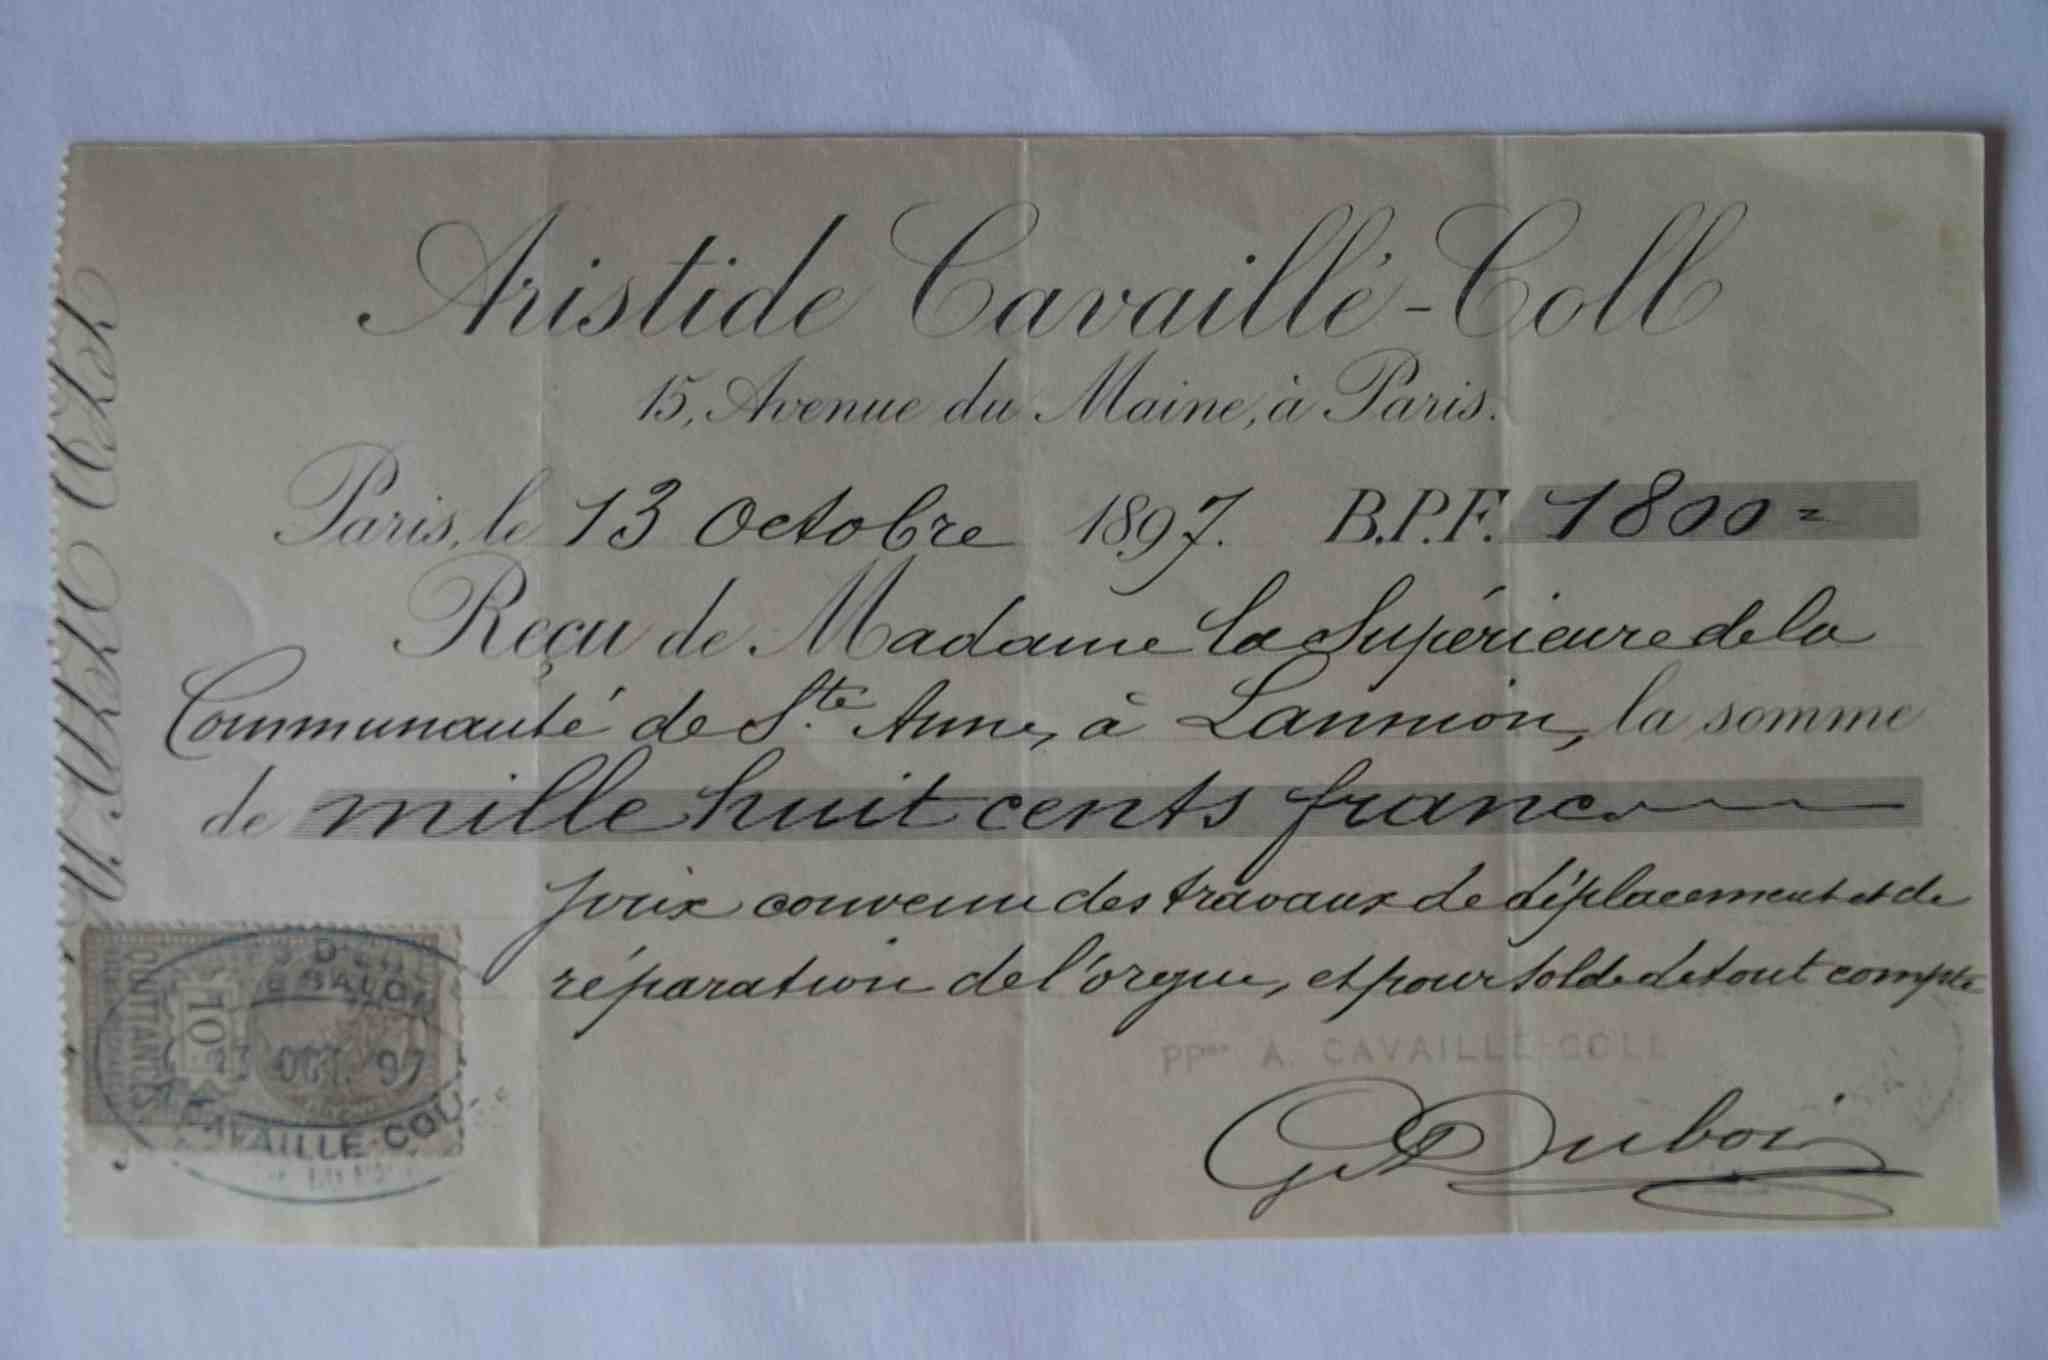 Aristide Cavaillé-Coll
15, Avenue du Maine, à Paris.
Paris, le 13 Octobre 1897. B.P.F. 1800=
Reçu de Madame la Supérieure de la
Communauté de Ste Anne, à Lannion, la somme
de mille huit cents francs
prix convenu des travaux de déplacement et de
réparation de l'orgue, et pour solde de tout compte
PPon A. CAVAILLÉ-COLL
G Dubois
QUITTANCES
10c
SALON
13 OCT. 97
A. CAVAILLE-COLL